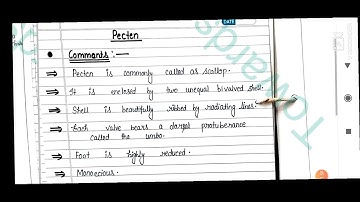 DATE
Pecten
Commants :—
⇒ Pecten is commonly called as scallop.
⇒ It is enclosed by two unequal bivalved shell.
⇒ Shell is beautifully ribbed by radiating lines.
⇒ Each valve bears a dorsal protuberance
called the umbo.
⇒ Foot is highly reduced.
⇒ Monoecious.
Towards